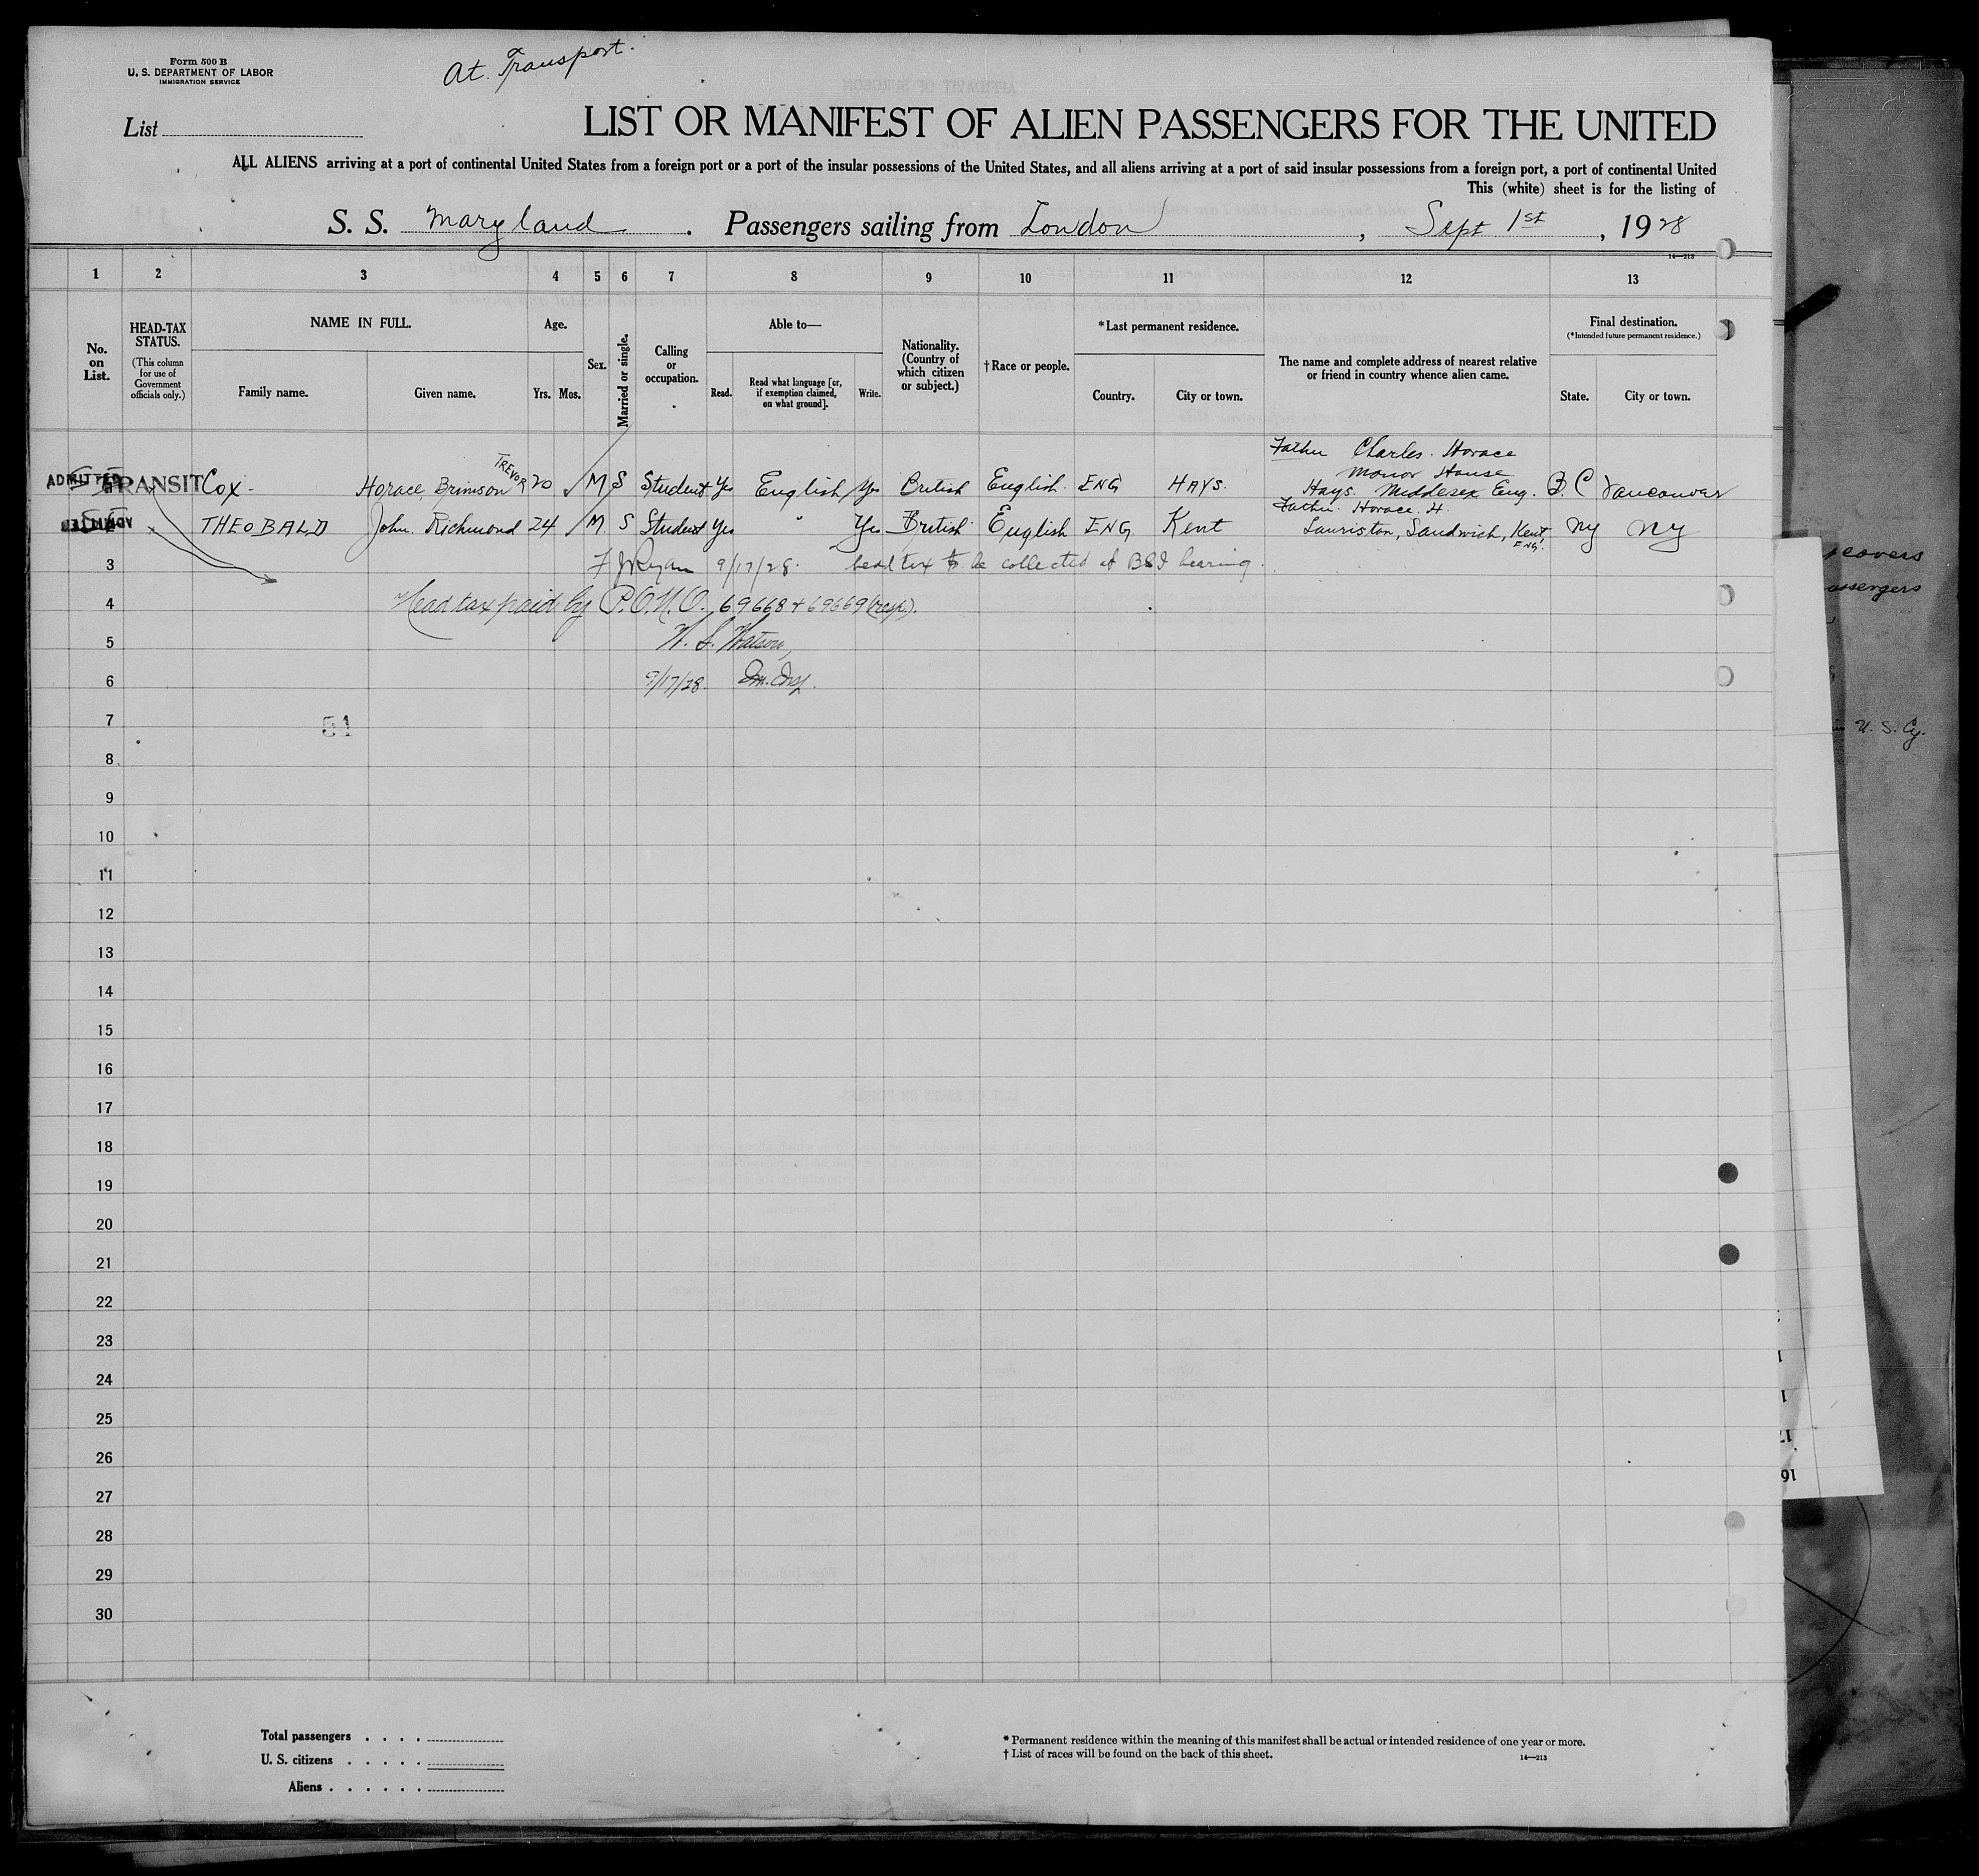 Form 500 B
U. S. DEPARTMENT OF LABOR
IMMIGRATION SERVICE
At. Transport.
List
LIST OR MANIFEST OF ALIEN PASSENGERS FOR THE UNITED
ALL ALIENS arriving at a port of continental United States from a foreign port or a port of the insular possessions of the United States, and all aliens arriving at a port of said insular possessions from a foreign port, a port of continental United
This (white) sheet is for the listing of
S. S. Maryland . Passengers sailing from London , Sept 1st , 1928
14—213
1 2 3 4 5 6 7 8 9 10 11 12 13
No. on List.
HEAD-TAX STATUS.
(This column for use of Government officials only.)
NAME IN FULL.
Family name. Given name.
Age.
Yrs. Mos.
Sex.
Married or single.
Calling or occupation.
Able to—
Read. Read what language [or, if exemption claimed, on what ground]. Write.
Nationality. (Country of which citizen or subject.)
†Race or people.
*Last permanent residence.
Country. City or town.
The name and complete address of nearest relative or friend in country whence alien came.
Final destination.
(*Intended future permanent residence.)
State. City or town.
ADMITTED TRANSIT Cox - Horace, Brimson TREVOR 20 M S Student Yes English Yes British English. ENG HAYS. Father Charles. Horace Manor House Hays. Middlesex Eng. B. C Vancouver
ADMITTED THEOBALD John. Richmond 24 M. S Student Yes " Yes British English ENG. Kent Father. Horace. H. Lauriston, Sandwich, Kent, ENG. NY NY
3 F J Ryan 9/17/28. head tax to be collected at BSI hearing.
4 Head tax paid by P.O.N.O. 69668 + 69669 (resp.).
5 W. S. Watson,
6 9/17/28. Im. Insp.
7 51
8
9
10
11
12
13
14
15
16
17
18
19
20
21
22
23
24
25
26
27
28
29
30
Total passengers . . . .
U. S. citizens . . . . .
Aliens . . . . . .
* Permanent residence within the meaning of this manifest shall be actual or intended residence of one year or more.
† List of races will be found on the back of this sheet.
14—213
assengers
U. S. Cy.
16